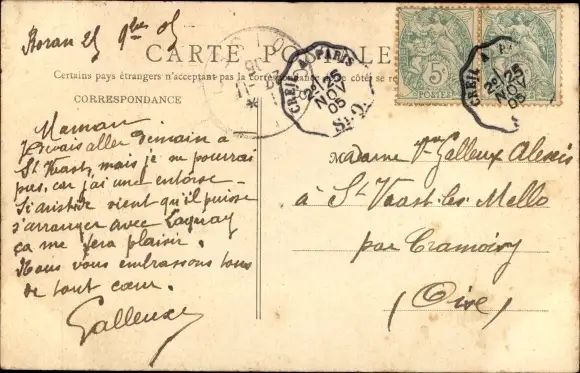 Boran 25 9bre 05
CARTE POSTALE
Certains pays étrangers n'acceptant pas la correspondance de ce côté se
CORRESPONDANCE
CREIL A PARIS
2° 25
NOV
05
CREIL A PARIS
2° 25
NOV
05
5c
POSTES
Maman
Je devais aller demain à
St Vaast, mais je ne pourrai
pas, car j'ai une entorse.
Si Aristide vient qu'il puisse
s'arranger avec
ça me fera plaisir.
Nous vous embrassons tous
de tout cœur.
Galleux
Madame Vve Galleux Alexis
à St Vaast-les-Mello
par Cramoisy
(Oise)